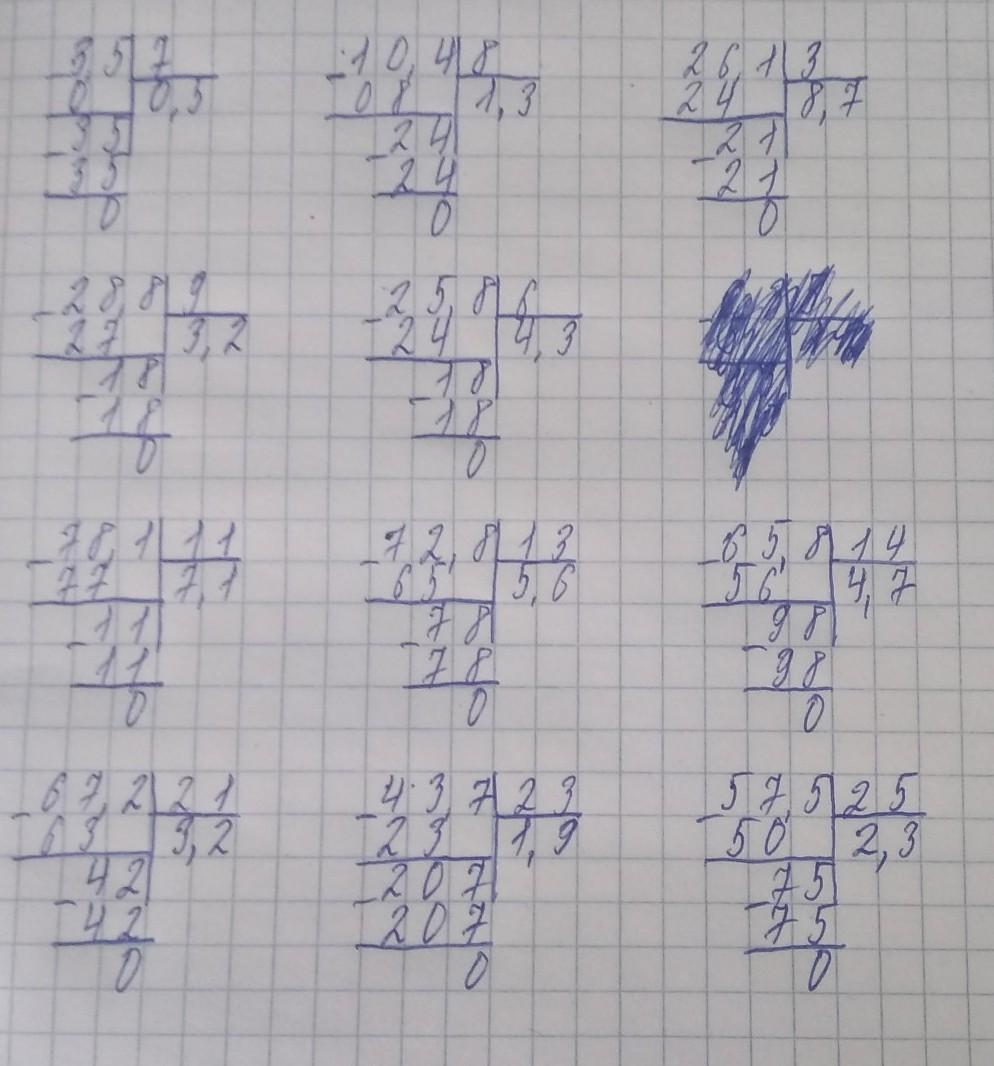 -3,5 7 -10,4 8 26,1 3
0 0,5 08 1,3 24 8,7
-35 -24 -21
35 24 21
0 0 0
-28,8 9 -25,8 6
27 3,2 24 4,3
-18 -18
18 18
0 0
-78,1 11 -72,8 13 -65,8 14
77 7,1 65 5,6 56 4,7
-11 -78 -98
11 78 98
0 0 0
-67,2 21 -43,7 23 -57,5 25
63 3,2 23 1,9 50 2,3
-42 -207 -75
42 207 75
0 0 0